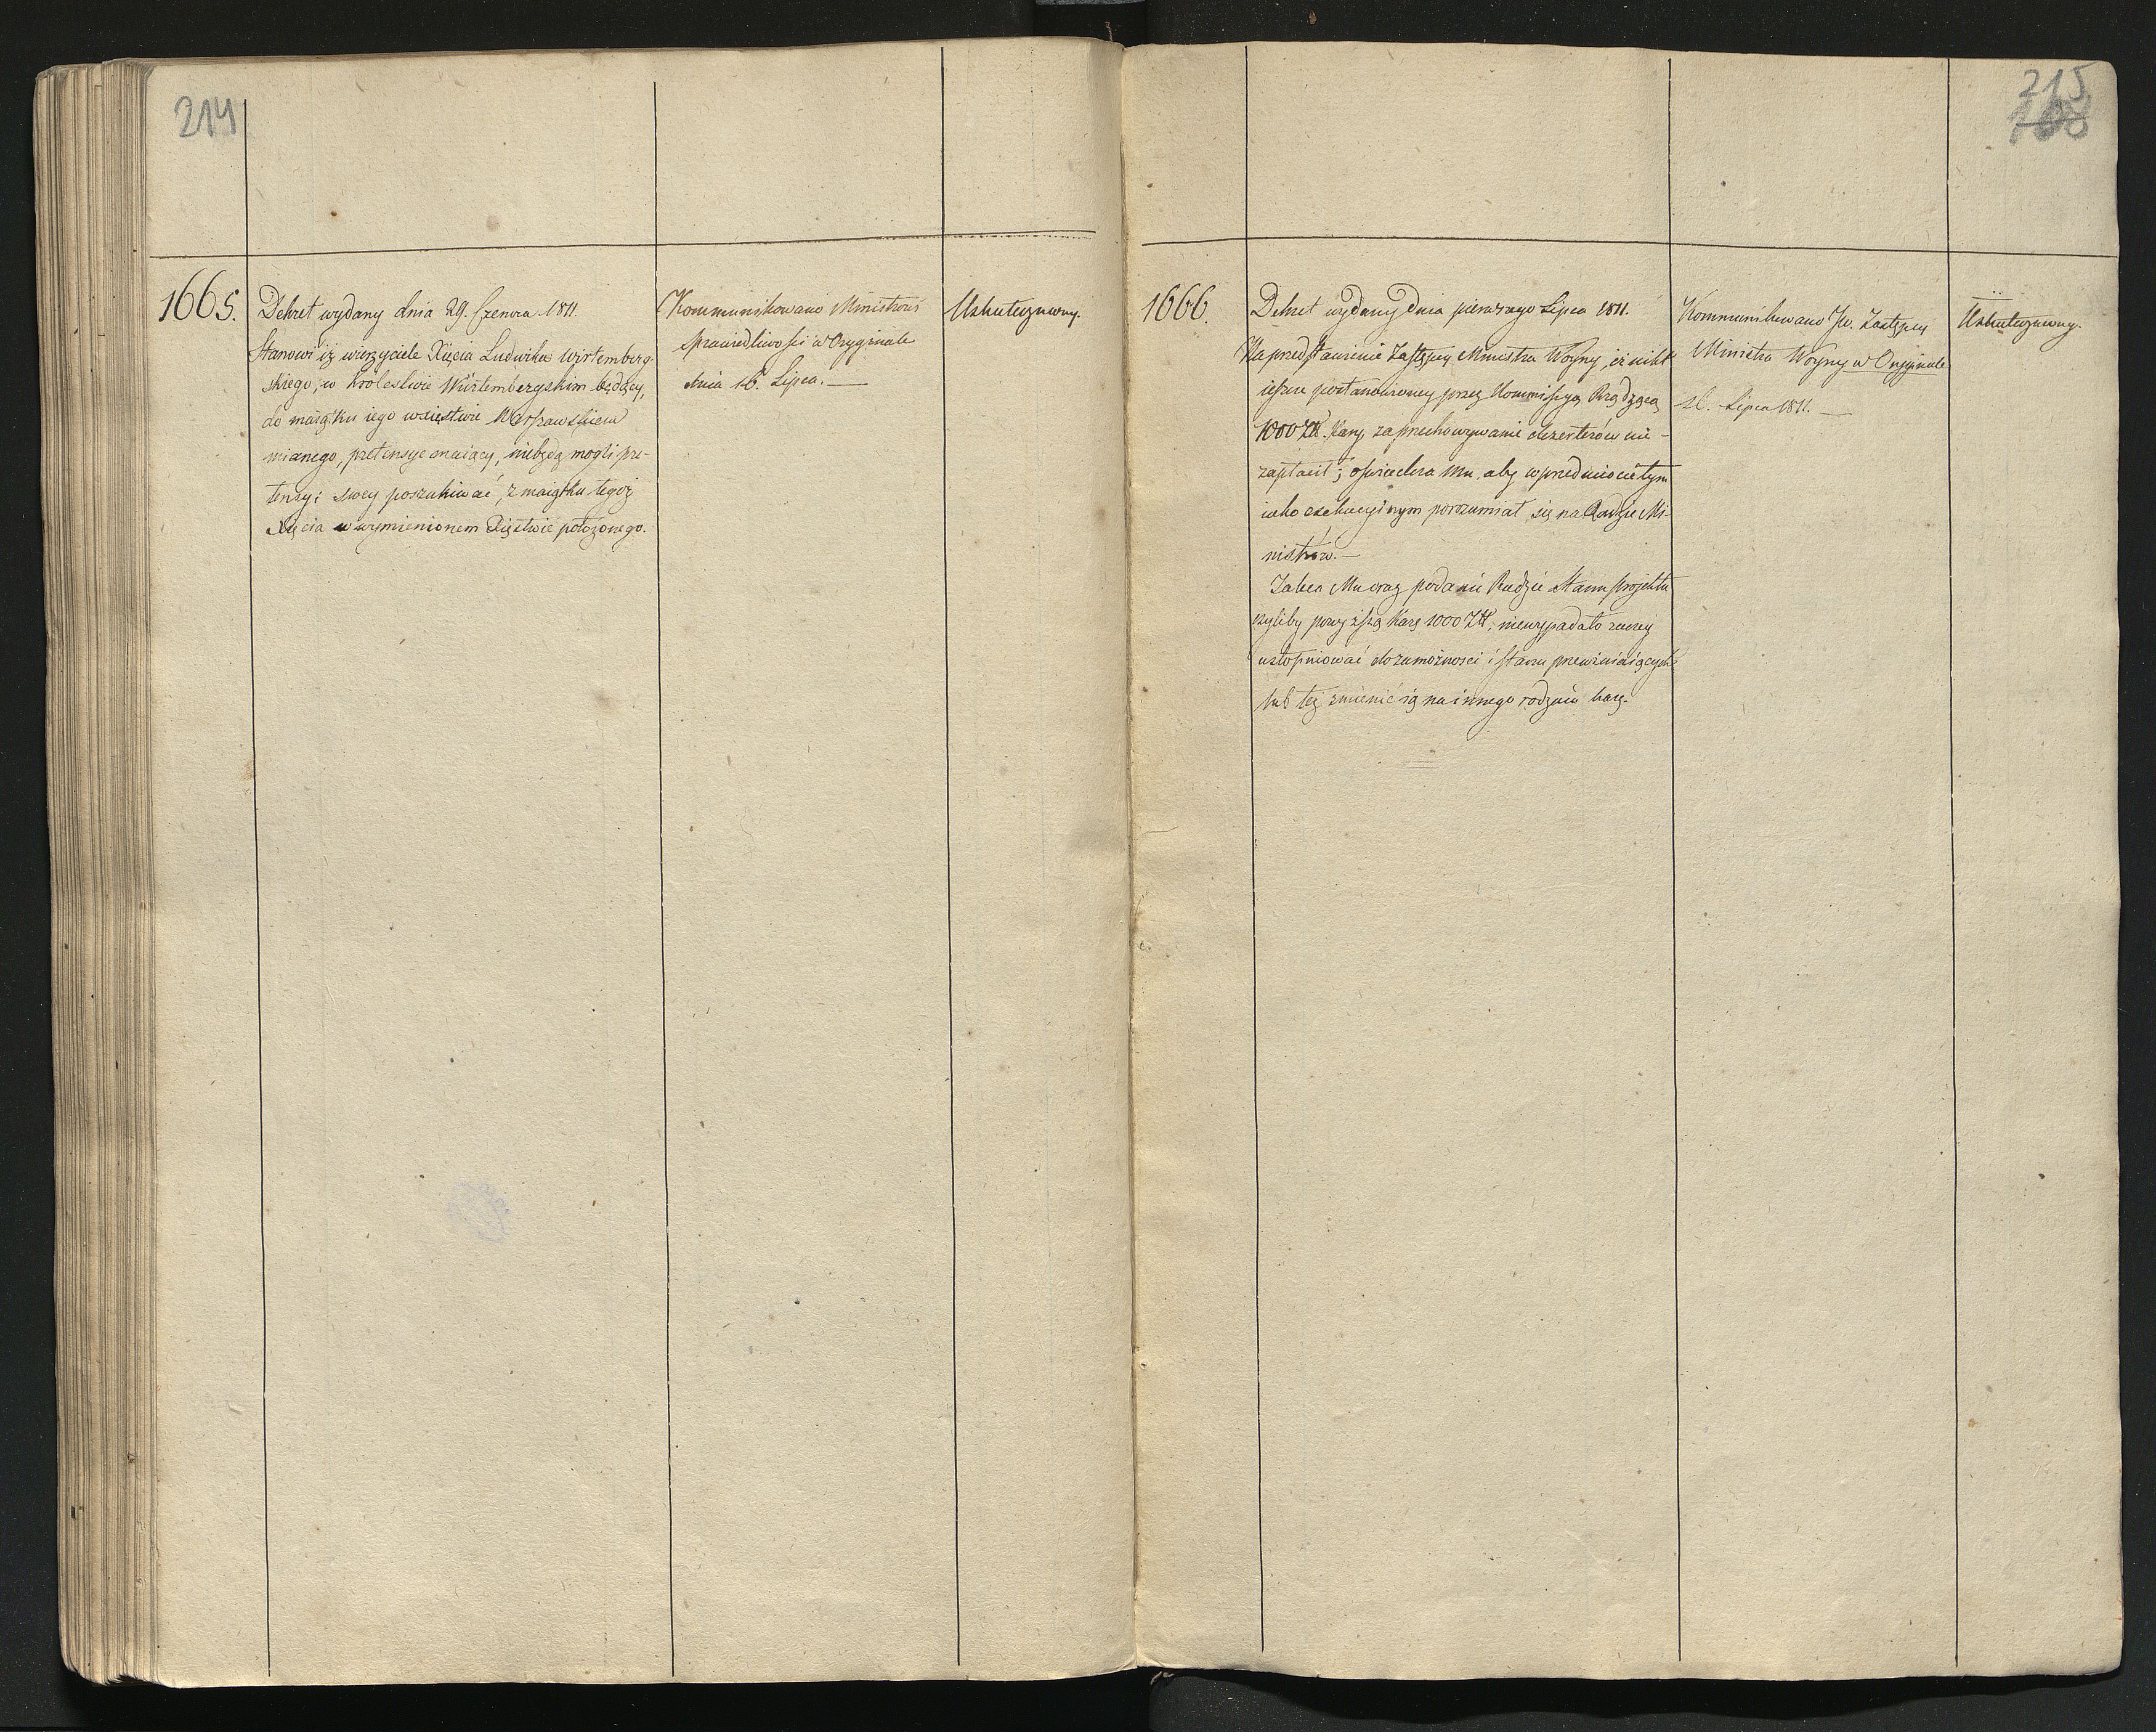 214
1665.
Dekret wydany dnia 29. Czerwca 1811.
Stanowi iż wierzyciele Xięcia Ludwika Wirtemberg-
skiego, w Krolestwie Würtembergskim będący,
do maiątku iego w Xięstwie Warszawskiem
mianego, pretensye maiący, niebędą mogli pre-
tensyi swey poszukiwać, z maiątku tegoż
Xięcia w wymienionem Xięstwie położonego.
Kommunikowano Ministrowi
Sprawiedliwości w Oryginale
dnia 16. Lipca. —
Uskuteczniony.
215
108
1666.
Dekret wydany dnia pierwszego Lipca 1811.
Na przedstawienie Zastępcy Ministra Woyny, iż nikt
ieszcze postanowioney przez Kommissyą Rządzącą
1000 Zł. Kary, za przechowywanie dezerterów nie-
zapłacił; oświadcza Mu, aby w przedmiocie tym
iako exekucyinym porozumiał się na Radzie Mi-
nistrów. —
Zaleca Mu oraz podanie Radzie Stanu projektu
czyliby powyższą Karę 1000 Zł, niewypadało raczey
ustopniować do zamożności i stanu przewiniaiących
lub też zmienić ią na innego rodzaiu karę.
Kommunikowano JW. Zastępcy
Ministra Woyny w Oryginale
16. Lipca 1811. —
Uskuteczniony.